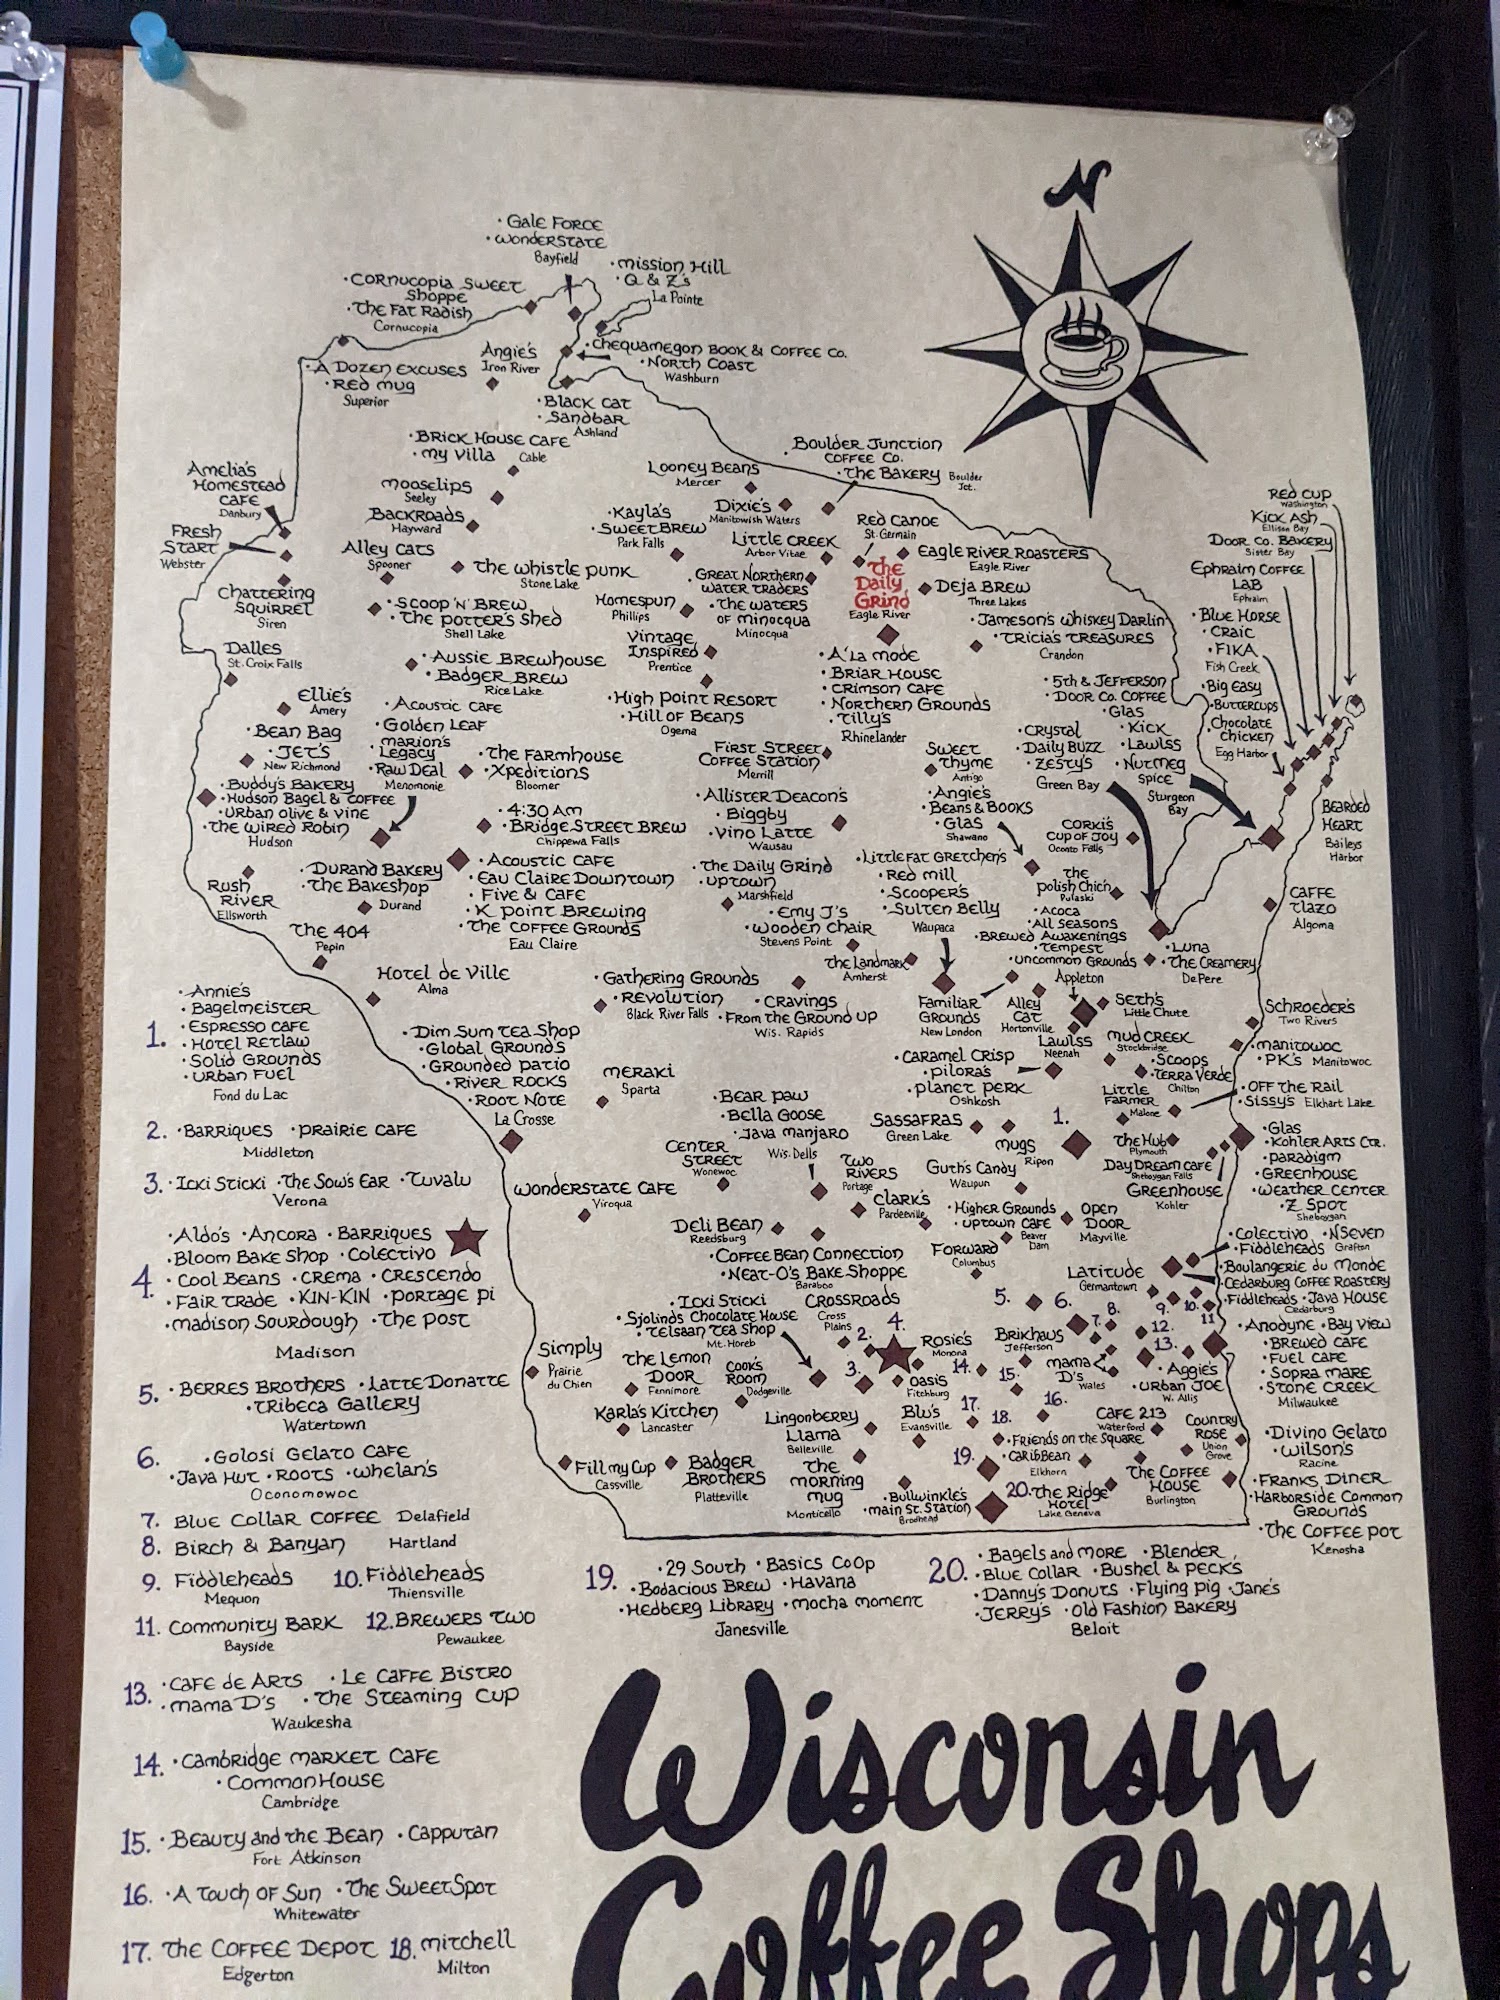 N
· Gale Force
· Wonderstate
Bayfield
· Mission Hill
· Q & Z's
La Pointe
· Cornucopia Sweet
Shoppe
· The Fat Radish
Cornucopia
· Chequamegon Book & Coffee Co.
· North Coast
Washburn
Angie's
Iron River
· A Dozen Excuses
· Red Mug
Superior
· Black Cat
· Sandbar
Ashland
· Brick House Cafe
· My Villa
Cable
· Boulder Junction
Coffee Co.
· The Bakery
Boulder
Jct.
Looney Beans
Mercer
Amelia's
Homestead
Cafe
Danbury
Mooselips
Seeley
Backroads
Hayward
Dixie's
Manitowish Waters
· Kayla's
· Sweet Brew
Park Falls
Red Canoe
St. Germain
Fresh
Start
Webster
Little Creek
Arbor Vitae
Alley Cats
Spooner
The Whistle Punk
Stone Lake
Eagle River Roasters
Eagle River
The
Daily
Grind
Eagle River
Deja Brew
Three Lakes
· Great Northern
Water Traders
· The Waters
of Minocqua
Minocqua
Chattering
Squirrel
Siren
· Scoop 'N' Brew
· The Potter's Shed
Shell Lake
Homespun
Phillips
Vintage
Inspired
Prentice
· Jameson's Whiskey Darlin
· Tricia's Treasures
Crandon
Dalles
St. Croix Falls
· Aussie Brewhouse
· Badger Brew
Rice Lake
· A'La Mode
· Briar House
· Crimson Cafe
· Northern Grounds
· Tilly's
Rhinelander
· High Point Resort
· Hill of Beans
Ogema
Ellie's
Amery
· Acoustic Cafe
· Golden Leaf
· Marion's
Legacy
· Raw Deal
Menomonie
· Bean Bag
· Jet's
New Richmond
· The Farmhouse
· Xpeditions
Bloomer
First Street
Coffee Station
Merrill
Sweet
Thyme
Antigo
· Buddy's Bakery
· Hudson Bagel & Coffee
· Urban Olive & Vine
· The Wired Robin
Hudson
· 4:30 AM
· Bridge Street Brew
Chippewa Falls
· Allister Deacon's
· Biggby
· Vino Latte
Wausau
· Angie's
· Beans & Books
· Glas
Shawano
Red Cup
Washington
Kick Ash
Ellison Bay
Door Co. Bakery
Sister Bay
Ephraim Coffee
Lab
Ephraim
· Blue Horse
· Craic
· Fika
Fish Creek
· Big Easy
· Buttercups
· Chocolate
Chicken
Egg Harbor
· 5th & Jefferson
· Door Co. Coffee
· Glas
· Kick
· Lawlss
· Nutmeg
Spice
Sturgeon
Bay
· Crystal
· Daily Buzz
· Zesty's
Green Bay
Bearded
Heart
Baileys
Harbor
Corki's
Cup of Joy
Oconto Falls
Rush
River
Ellsworth
· Durand Bakery
· The Bakeshop
Durand
· Acoustic Cafe
· Eau Claire Downtown
· Five & Cafe
· K Point Brewing
· The Coffee Grounds
Eau Claire
· The Daily Grind
· Uptown
Marshfield
· Little Fat Gretchen's
· Red Mill
· Scooper's
· Sulten Belly
Waupaca
The
Polish Chich
Pulaski
Caffe
Tlazo
Algoma
The 404
Pepin
· Emy J's
· Wooden Chair
Stevens Point
· Acoca
· All Seasons
· Brewed Awakenings
· Tempest
· Uncommon Grounds
Appleton
· Luna
· The Creamery
De Pere
The Landmark
Amherst
Hotel de Ville
Alma
· Gathering Grounds
· Revolution
Black River Falls
· Cravings
· From the Ground Up
Wis. Rapids
Familiar
Grounds
New London
Alley
Cat
Hortonville
Seth's
Little Chute
Schroeder's
Two Rivers
1. · Annie's
· Bagelmeister
· Espresso Cafe
· Hotel Retlaw
· Solid Grounds
· Urban Fuel
Fond du Lac
· Dim Sum Tea Shop
· Global Grounds
· Grounded Patio
· River Rocks
· Root Note
La Crosse
Meraki
Sparta
Lawlss
Neenah
Mud Creek
Stockbridge
· Manitowoc
· PK's Manitowoc
· Caramel Crisp
· Pilora's
· Planet Perk
Oshkosh
· Scoops
· Terra Verde
Chilton
Little
Farmer
Malone
· Off the Rail
· Sissy's Elkhart Lake
2. · Barriques · Prairie Cafe
Middleton
· Bear Paw
· Bella Goose
· Java Manjaro
Wis. Dells
Sassafras
Green Lake
Mugs
Ripon
1.
The Hub
Plymouth
· Glas
· Kohler Arts Ctr.
· Paradigm
· Greenhouse
· Weather Center
· Z Spot
Sheboygan
Day Dream Cafe
Sheboygan Falls
Greenhouse
Kohler
3. · Icki Sticki · The Sow's Ear · Tuvalu
Verona
Wonderstate Cafe
Viroqua
Center
Street
Wonewoc
Two
Rivers
Portage
Guth's Candy
Waupun
Clark's
Pardeeville
· Higher Grounds
· Uptown Cafe
Beaver
Dam
Open
Door
Mayville
Deli Bean
Reedsburg
· Coffee Bean Connection
· Neat-O's Bake Shoppe
Baraboo
Forward
Columbus
Latitude
Germantown
· Colectivo · NSeven
· Fiddleheads Grafton
· Boulangerie du Monde
· Cedarburg Coffee Roastery
· Fiddleheads · Java House
Cedarburg
4. · Aldo's · Ancora · Barriques
· Bloom Bake Shop · Colectivo
· Cool Beans · Crema · Crescendo
· Fair Trade · Kin-Kin · Portage Pi
· Madison Sourdough · The Post
Madison
· Icki Sticki
· Sjolinds Chocolate House
· Telsaan Tea Shop
Mt. Horeb
Crossroads
Cross
Plains
2.
3.
4.
5.
6.
7.
8.
9.
10.
11
12.
13.
14.
15.
16.
17.
18.
19.
20.
Rosie's
Monona
Oasis
Fitchburg
Brikhaus
Jefferson
Mama
D's
Wales
· Aggie's
· Urban Joe
W. Allis
· Anodyne · Bay View
· Brewed Cafe
· Fuel Cafe
· Sopra Mare
· Stone Creek
Milwaukee
Simply
Prairie
du Chien
The Lemon
Door
Fennimore
Cook's
Room
Dodgeville
Karla's Kitchen
Lancaster
Lingonberry
Llama
Belleville
Blu's
Evansville
Cafe 213
Waterford
Country
Rose
Union
Grove
· Divino Gelato
· Wilson's
Racine
· Friends on the Square
· Caribbean
Elkhorn
Fill My Cup
Cassville
Badger
Brothers
Platteville
The
Morning
Mug
Monticello
· Bullwinkle's
· Main St. Station
Brodhead
The Ridge
Hotel
Lake Geneva
The Coffee
House
Burlington
· Franks Diner
· Harborside Common
Grounds
· The Coffee Pot
Kenosha
5. · Berres Brothers · Latte Donatte
· Tribeca Gallery
Watertown
6. · Golosi Gelato Cafe
· Java Hut · Roots · Whelan's
Oconomowoc
7. Blue Collar Coffee Delafield
8. Birch & Banyan Hartland
9. Fiddleheads
Mequon
10. Fiddleheads
Thiensville
11. Community Bark
Bayside
12. Brewers Two
Pewaukee
13. · Cafe de Arts · Le Caffe Bistro
· Mama D's · The Steaming Cup
Waukesha
14. · Cambridge Market Cafe
· CommonHouse
Cambridge
15. · Beauty and the Bean · Capputan
Fort Atkinson
16. · A Touch of Sun · The Sweet Spot
Whitewater
17. The Coffee Depot
Edgerton
18. Mitchell
Milton
19. · 29 South · Basics Coop
· Bodacious Brew · Havana
· Hedberg Library · Mocha Moment
Janesville
20. · Bagels and More · Blender
· Blue Collar · Bushel & Peck's
· Danny's Donuts · Flying Pig · Jane's
· Jerry's · Old Fashion Bakery
Beloit
Wisconsin
Coffee Shops